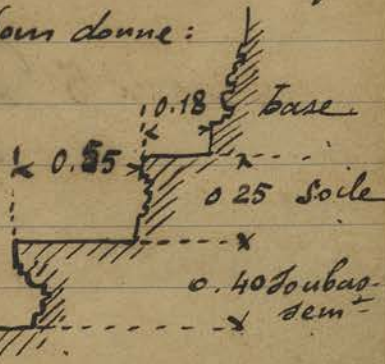 donne:
0.18 base
0.55
0 25 Soile
0.40 Soubas-
sem^t